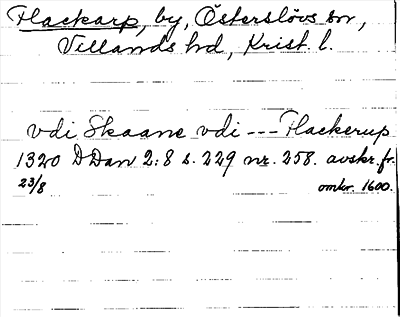 Flackarp, by, Österslövs sn,
Villands hd, Krist. l.
vdi Skaane vdi --- Flackerup
1320 DDan 2:8 s. 229 nr. 258. avskr. fr.
23/8 omkr. 1600.